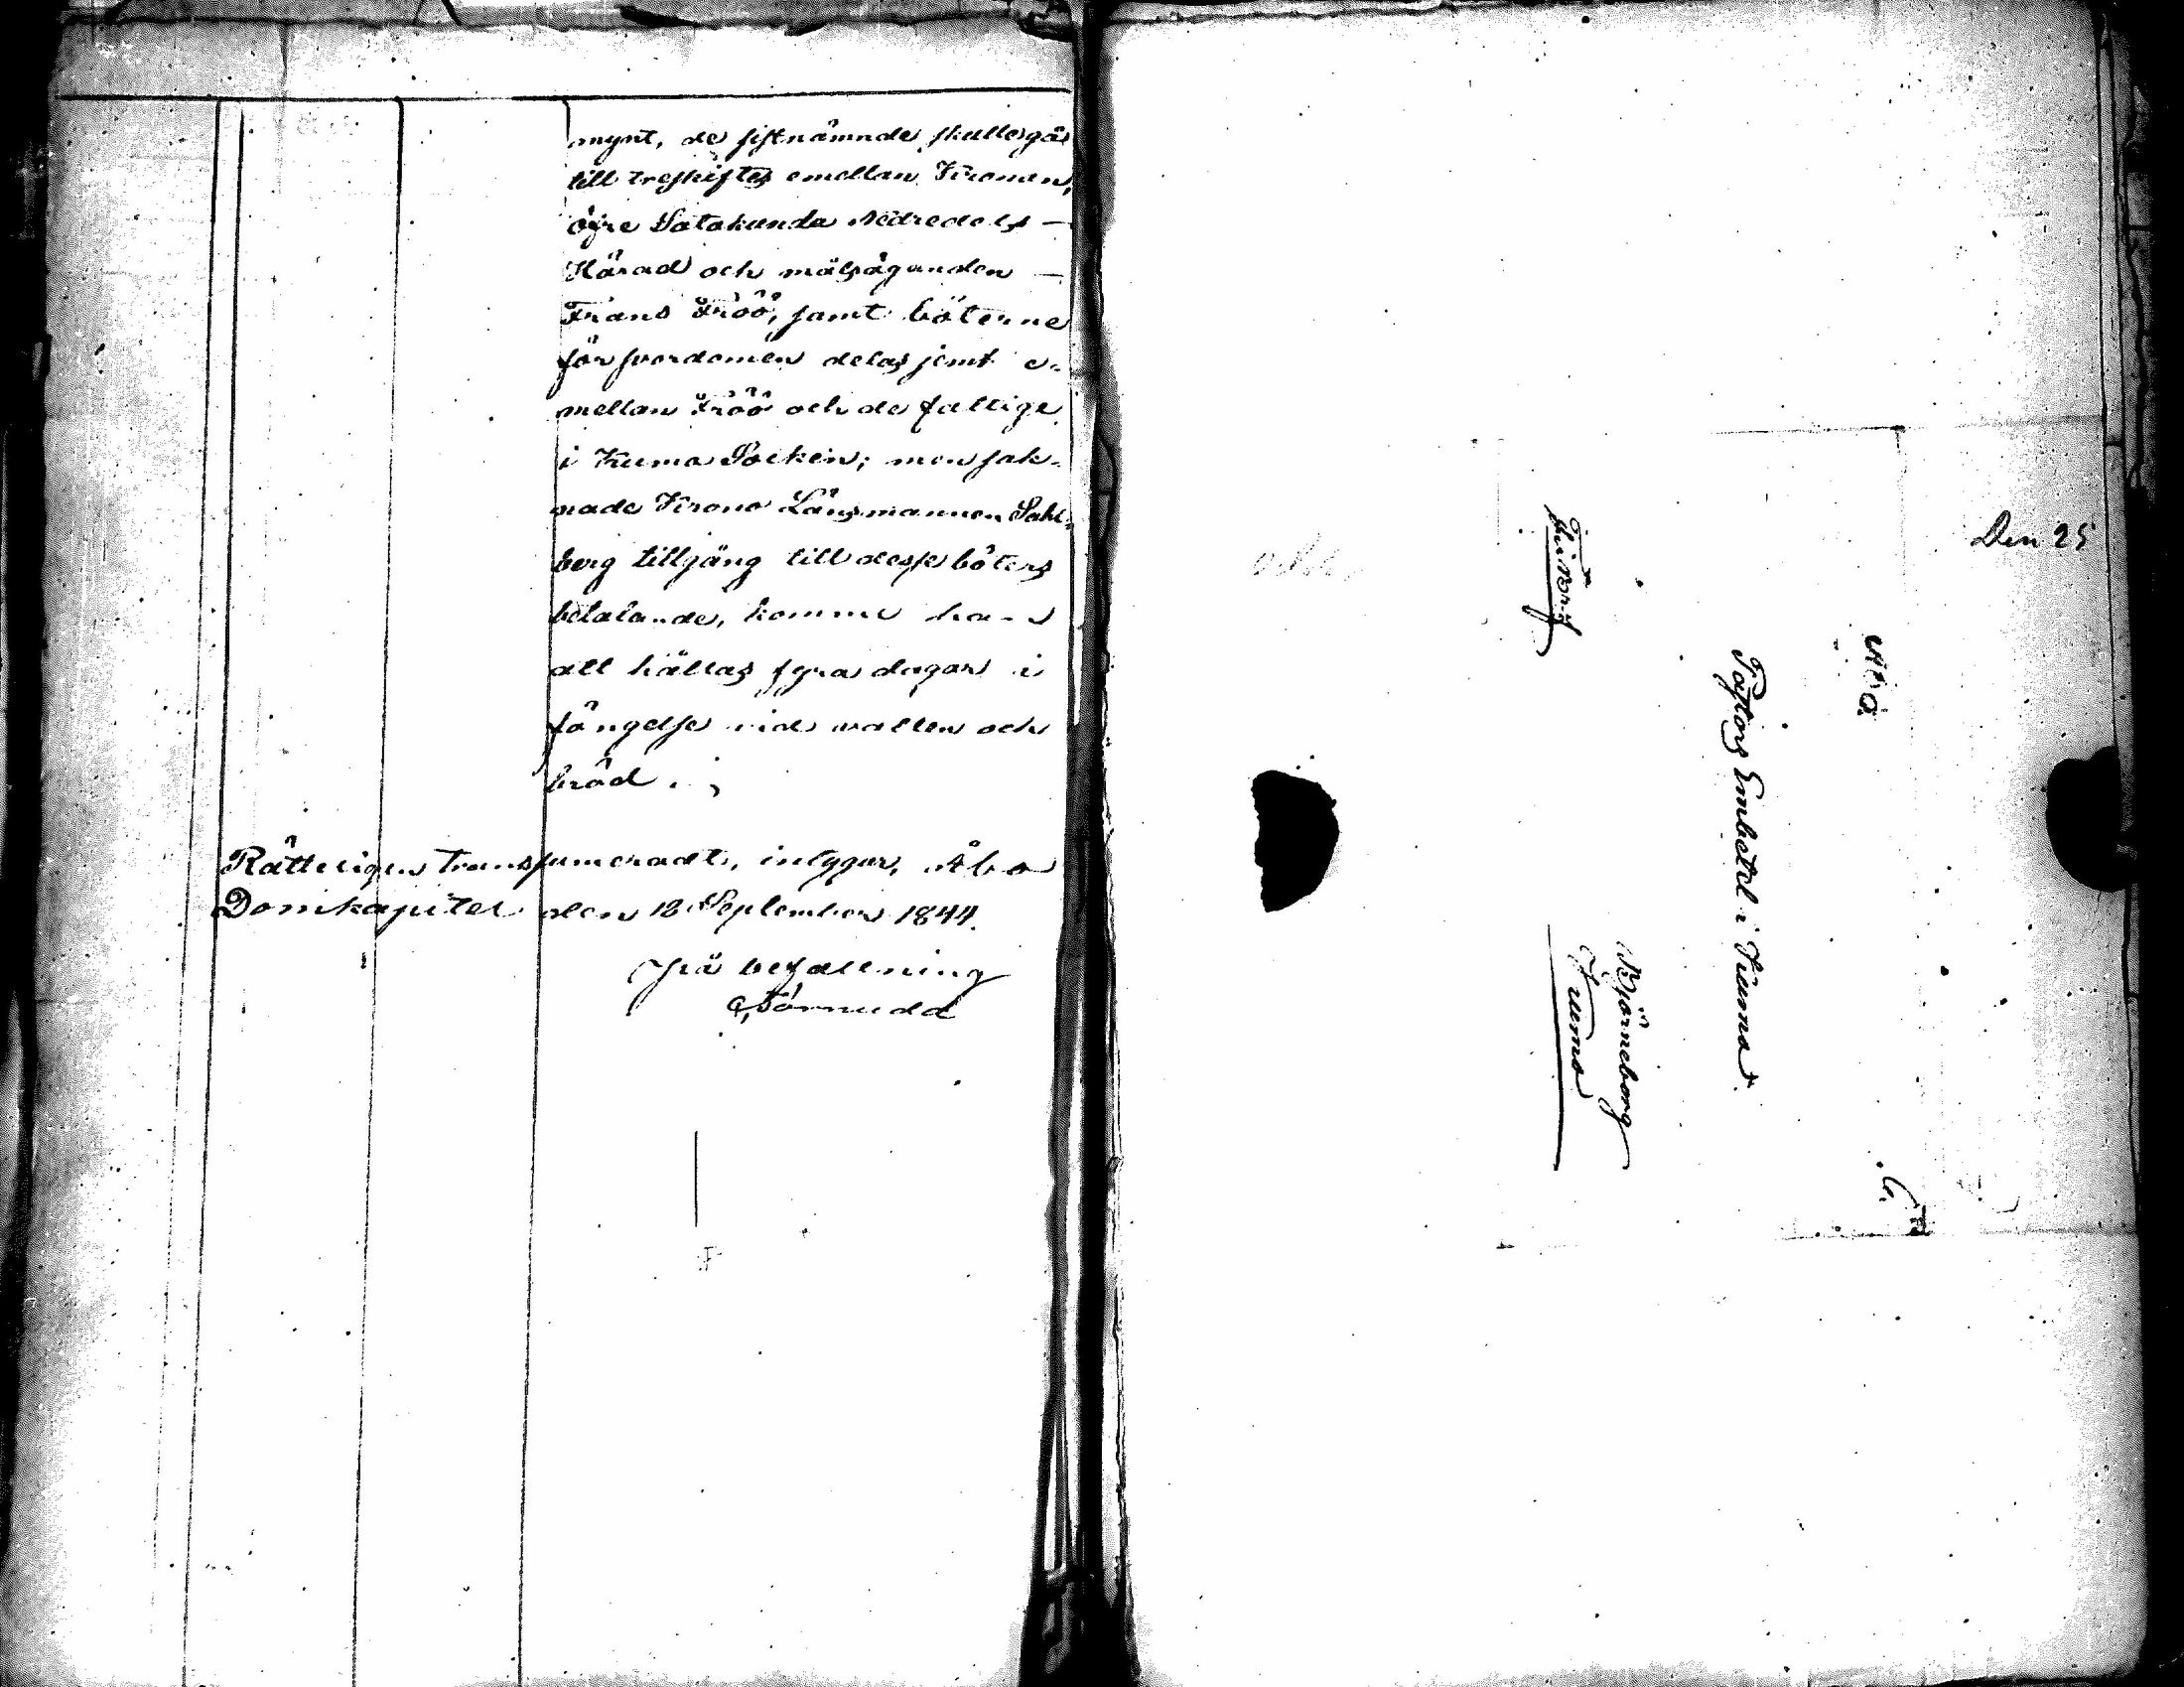 mynt, de sistnämnde skulle gå
till treskiftes emellan Kronan,
öfre Satakunda Nedredels
Härad och målsäganden
Frans Fröö, samt böterne
för svordomen delas jemt e-
mellan Fröö och de fattige
i Kumo Socken; men sak-
nade Krono Länsmannen Sahl-
berg tillgång till desse böters
betalande, komme han
att hållas fyra dagar i
fängelse vid vatten och
bröd.
Rätteligen transsumeradt, intygar, Åbo
Domkapitel den 18 September 1844.
På befallning
Törnudd
Den 25
Åbo
Pastors Embetet i Kumo
Björneborg
Kumo